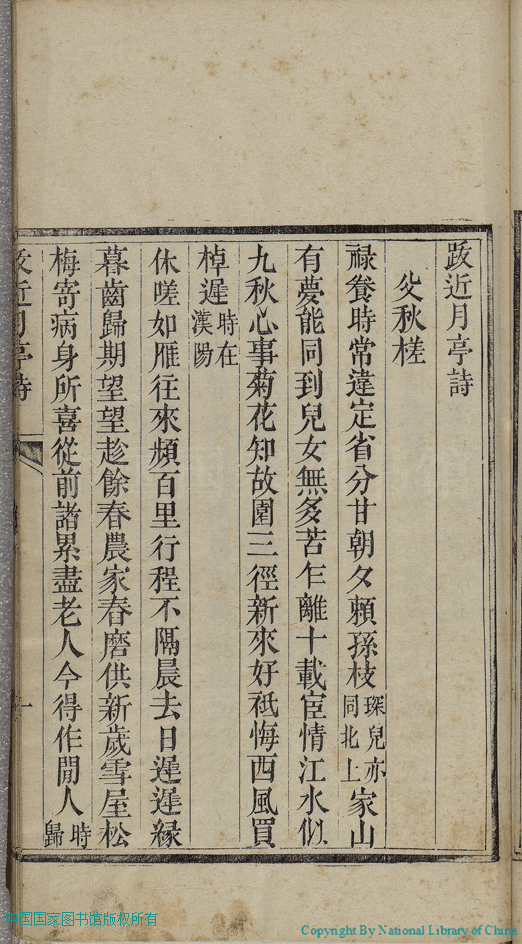 跋近月亭詩
殳秋槎
祿養時常違定省分甘朝夕賴孫枝琛兒亦同北上家山
有夢能同到兒女無多苦乍離十載宦情江水似
九秋心事菊花知故園三徑新來好祇悔西風買
棹遲時在漢陽
休嗟如雁往來頻百里行程不隔晨去日遲遲緣
暮齒歸期望望趁餘春農家春磨供新歲雪屋松
梅寄病身所喜從前諸累盡老人今得作閒人時歸
跋近月亭詩
一
中国国家图书馆版权所有
Copyright By National Library of China